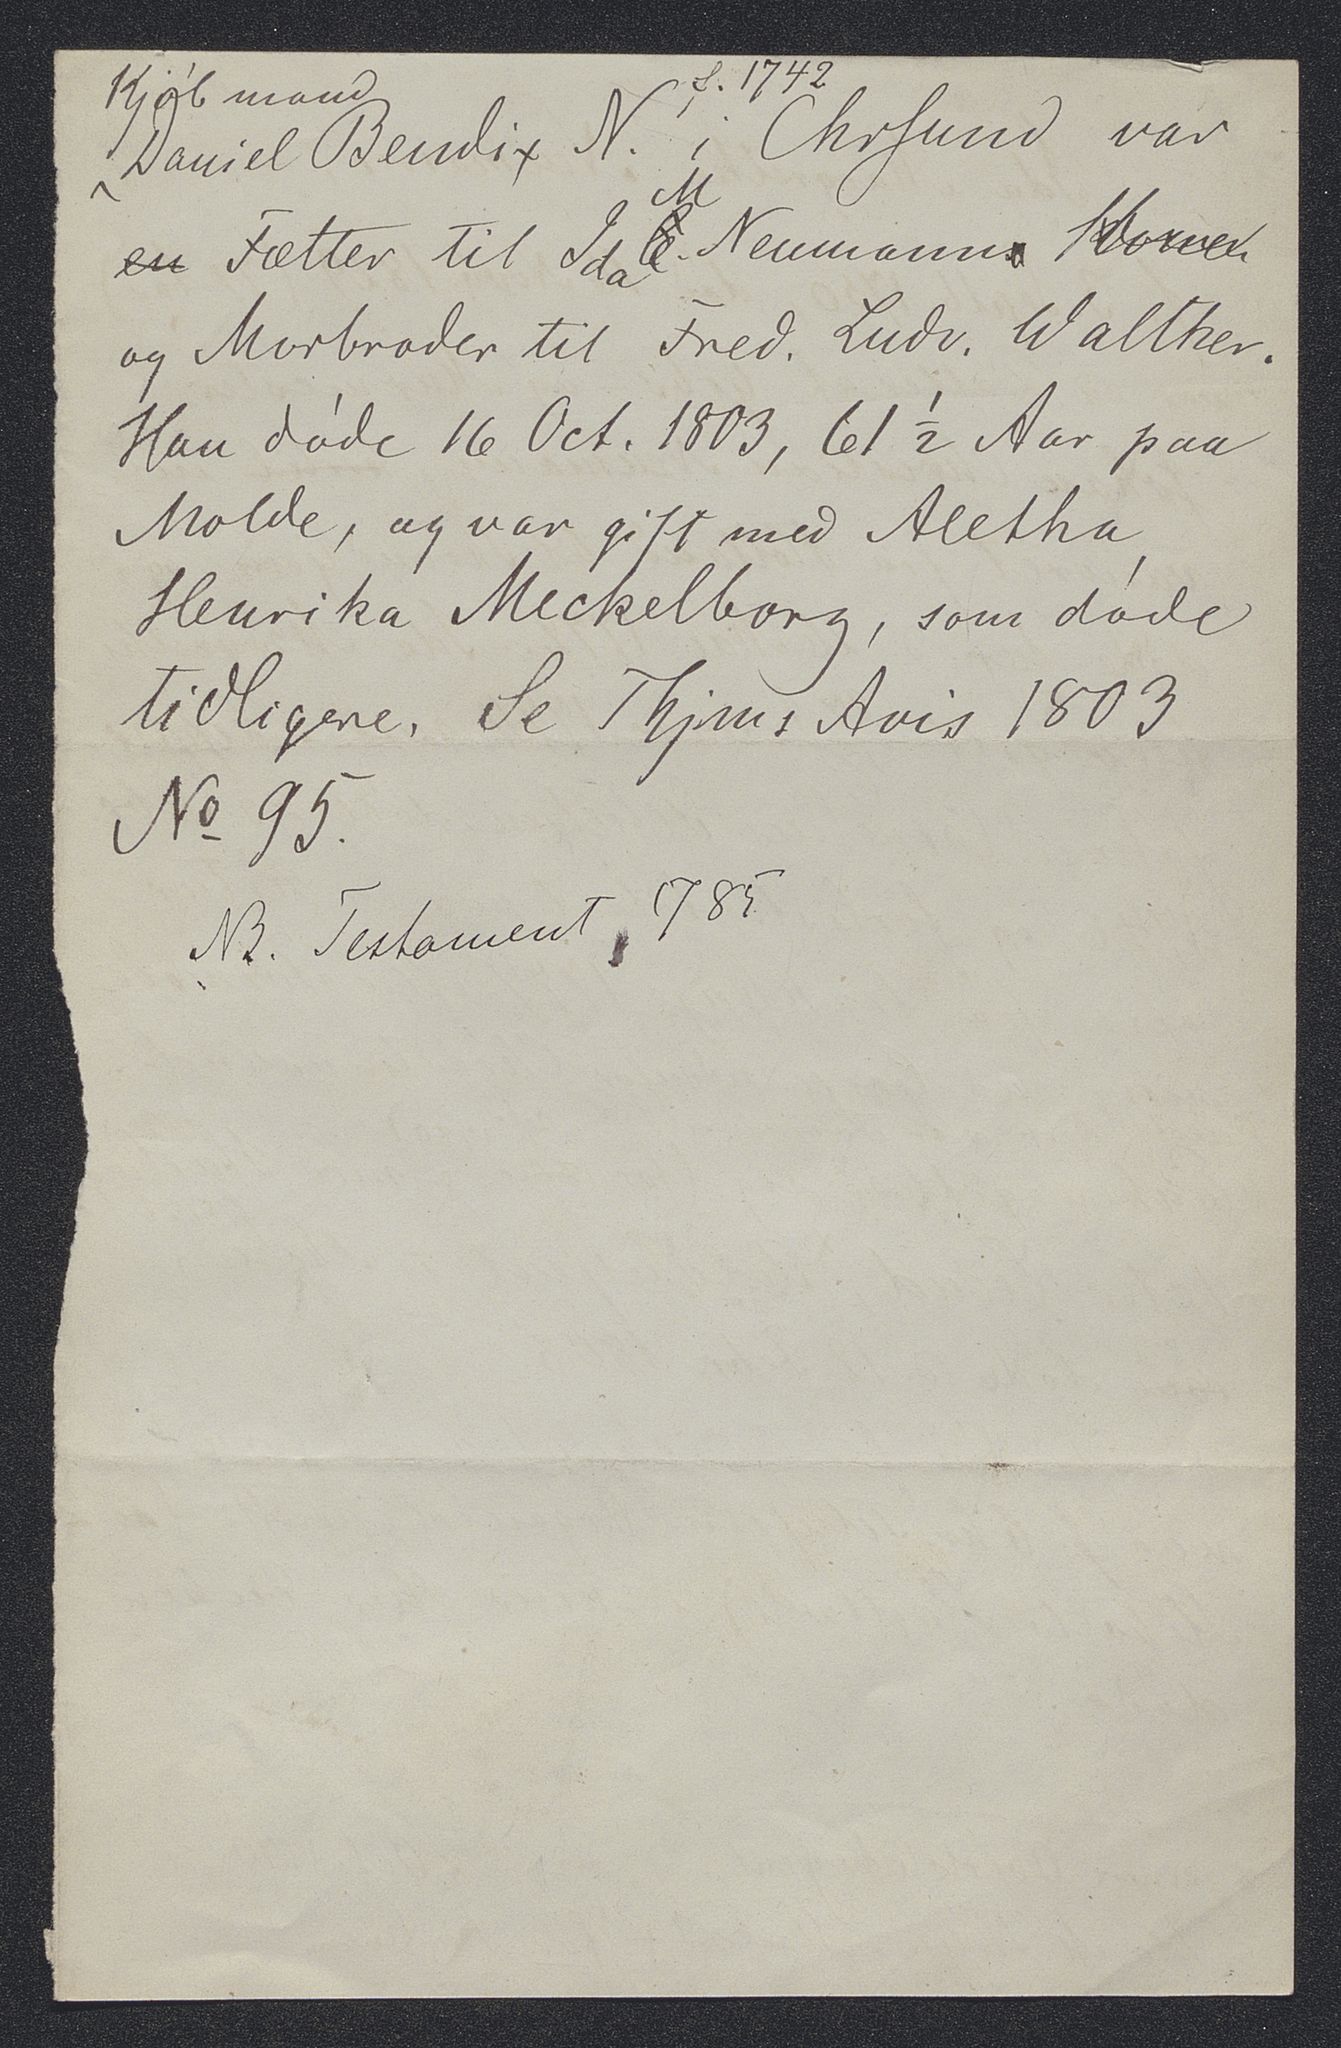 Kjøbmand
f. 1742
Daniel Bendix N. i Chrsund var
en Fætter til Ida M. Neumann
og Morbroder til Fred. Ludv. Walther.
Han døde 16 Oct. 1803, 61 ½ Aar paa
Molde, og var gift med Aletha
Henrika Meckelborg, som døde
tidligere. Se Thjms Avis 1803
No 95.
NB. Testament, 785